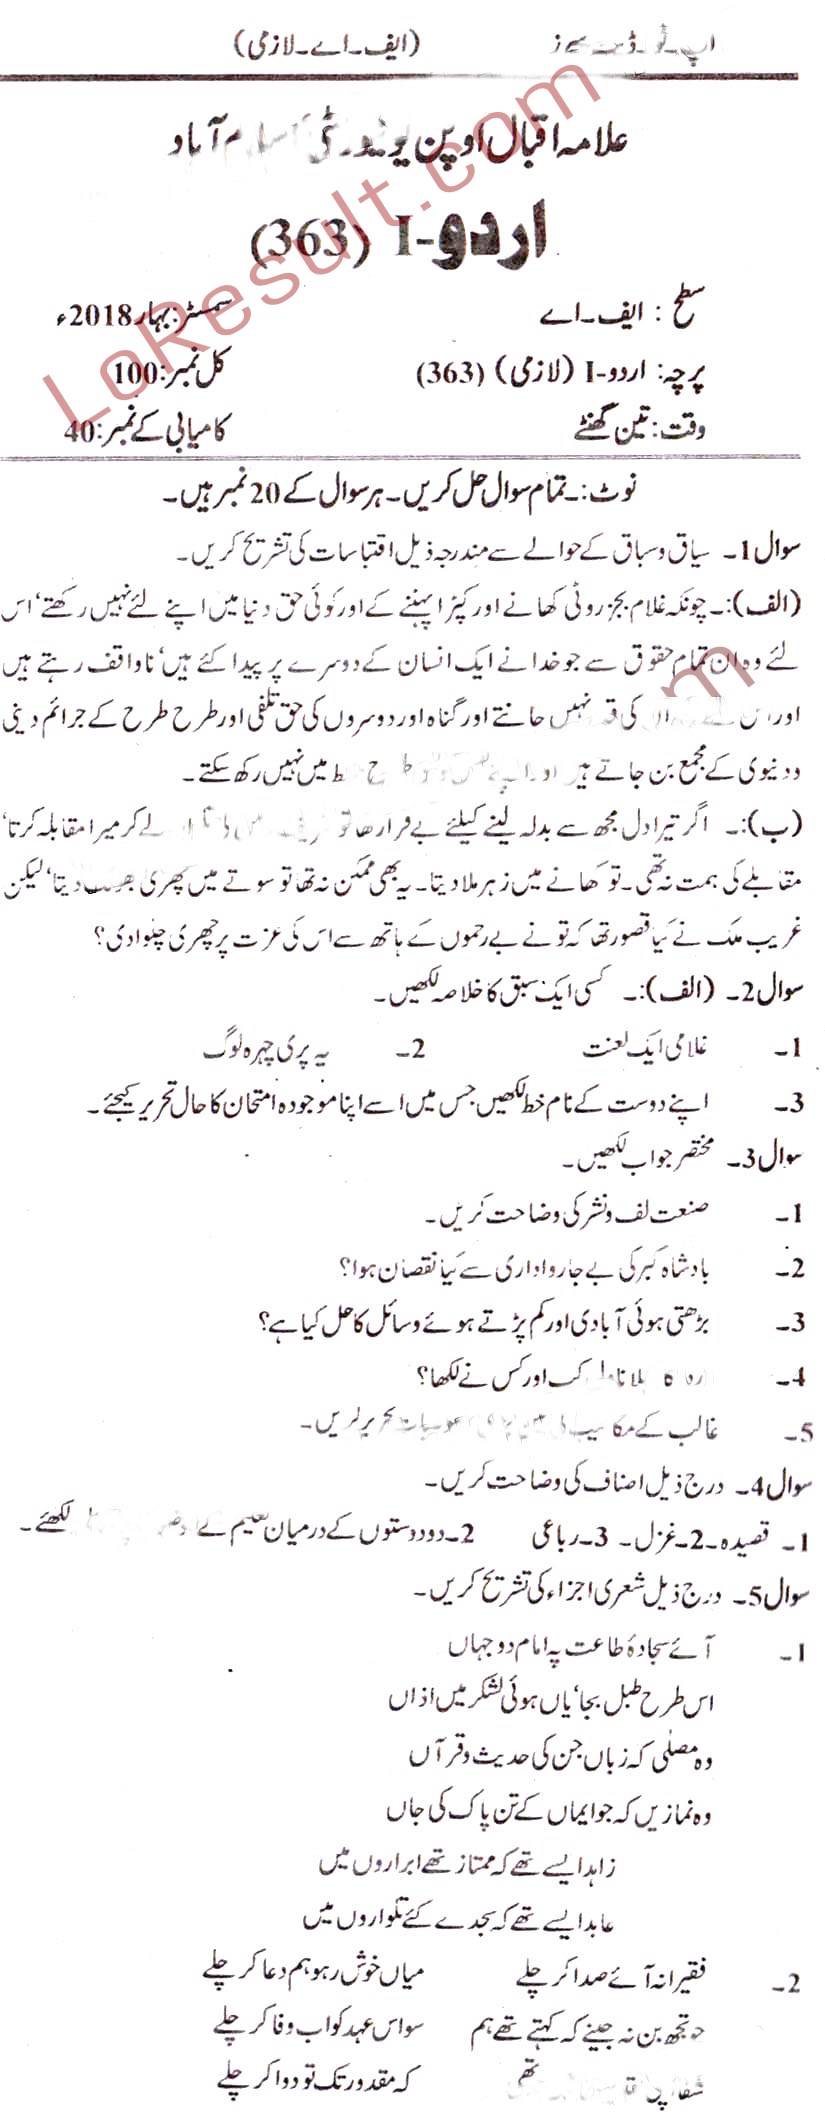 (ایف۔اے۔لازمی)
علامہ اقبال اوپن یونیورسٹی اسلام آباد
اردو-I (363)
سطح: ایف۔اے سمسٹر: بہار 2018ء
پرچہ: اردو-I (لازمی) (363) کل نمبر: 100
وقت: تین گھنٹے کامیابی کے نمبر: 40
LoResult.com
نوٹ:۔ تمام سوال حل کریں۔ ہر سوال کے 20 نمبر ہیں۔
سوال 1۔ سیاق و سباق کے حوالے سے مندرجہ ذیل اقتباسات کی تشریح کریں۔
(الف):۔ چونکہ غلام بجز روٹی کھانے اور کپڑا پہننے کے اور کوئی حق دنیا میں اپنے لئے نہیں رکھتے' اس
لئے وہ ان تمام حقوق سے جو خدا نے ایک انسان کے دوسرے پر پیدا کئے ہیں' ناواقف رہتے ہیں
اور اس لئے کی قدر نہیں جانتے اور گناہ اور دوسروں کی حق تلفی اور طرح طرح کے جرائم دینی
و دنیوی کے مجمع بن جاتے ہیں میں نہیں رکھ سکتے۔
(ب):۔ اگر تیرا دل مجھ سے بدلہ لینے کیلئے بے قرار تھا تو لے کر میرا مقابلہ کرتا'
مقابلے کی ہمت نہ تھی۔ تو کھانے میں زہر ملا دیتا۔ یہ بھی ممکن نہ تھا تو سوتے میں چھری دیتا' لیکن
غریب ملک نے کیا قصور تھا کہ تو نے بے رحموں کے ہاتھ سے اس کی عزت پر چھری چلوا دی؟
سوال 2۔ (الف):۔ کسی ایک سبق کا خلاصہ لکھیں۔
1۔ غلامی ایک لعنت 2۔ یہ پری چہرہ لوگ
3۔ اپنے دوست کے نام خط لکھیں جس میں اسے اپنا موجودہ امتحان کا حال تحریر کیجئے۔
سوال 3۔ مختصر جواب لکھیں۔
1۔ صنعت لف و نشر کی وضاحت کریں۔
2۔ بادشاہ کبر کی بے جا رواداری سے کیا نقصان ہوا؟
3۔ بڑھتی ہوئی آبادی اور کم پڑتے ہوئے وسائل کا حل کیا ہے؟
4۔ کب اور کس نے لکھا؟
5۔ غالب کے تحریر کریں۔
سوال 4۔ درج ذیل اصناف کی وضاحت کریں۔
1۔ قصیدہ۔ 2۔ غزل۔ 3۔ رباعی 2۔ دو دوستوں کے درمیان تعلیم لکھئے۔
سوال 5۔ درج ذیل شعری اجزاء کی تشریح کریں۔
1۔ آئے سجادۂ طاعت پہ امام دو جہاں
اس طرح طبل بجا' یاں ہوئی لشکر میں اذاں
وہ مصلٰی کہ زباں جن کی حدیث و قرآں
وہ نمازیں کہ جو ایماں کے تن پاک کی جاں
زاہد ایسے تھے کہ ممتاز تھے ابراروں میں
عابد ایسے تھے کہ سجدے کئے تلواروں میں
2۔ فقیرانہ آئے صدا کر چلے میاں خوش رہو ہم دعا کر چلے
جو تجھ بن نہ جینے کہ کہتے تھے ہم سو اس عہد کو اب وفا کر چلے
تھی کہ مقدور تک تو دوا کر چلے